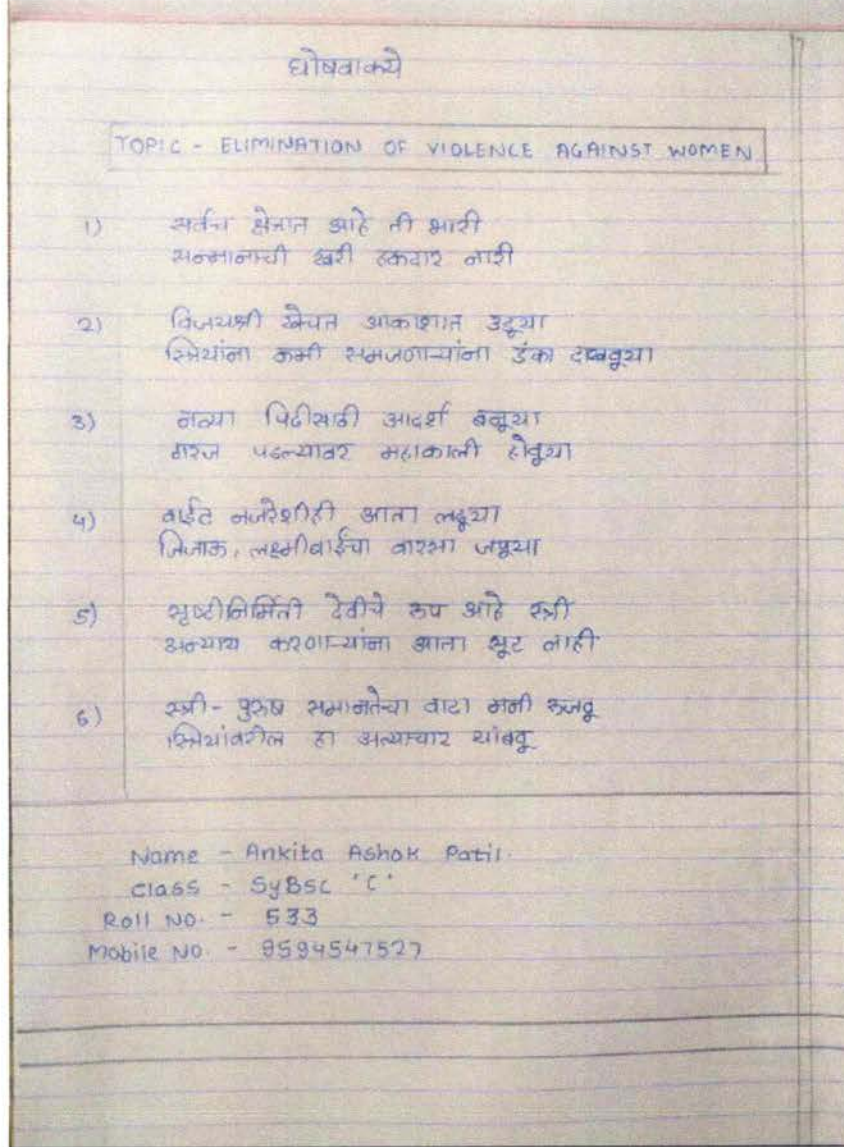 घोषवाक्ये
TOPIC - ELIMINATION OF VIOLENCE AGAINST WOMEN
1) सर्वच क्षेत्रात आहे ती भारी
सन्मानाची खरी हकदार नारी
2) विजयश्री खेचत आकाशात उडूया
स्त्रियांना कमी समजणाऱ्यांना डंका दाखवूया
3) नव्या पिढीसाठी आदर्श बनूया
गरज पडल्यावर महाकाली होवूया
4) वाईट नजरेशीही आता लढूया
जिजाऊ, लक्ष्मीबाईचा वारसा जपूया
5) सृष्टीनिर्मिती देवीचे रूप आहे स्त्री
अन्याय करणाऱ्यांना आता सूट नाही
6) स्त्री - पुरुष समानतेचा वाटा मनी रुजवू
स्त्रियांवरील हा अत्याचार थांबवू
Name - Ankita Ashok Patil.
Class - SyBsc 'C'
Roll No. - 533
Mobile No. - 9594547527